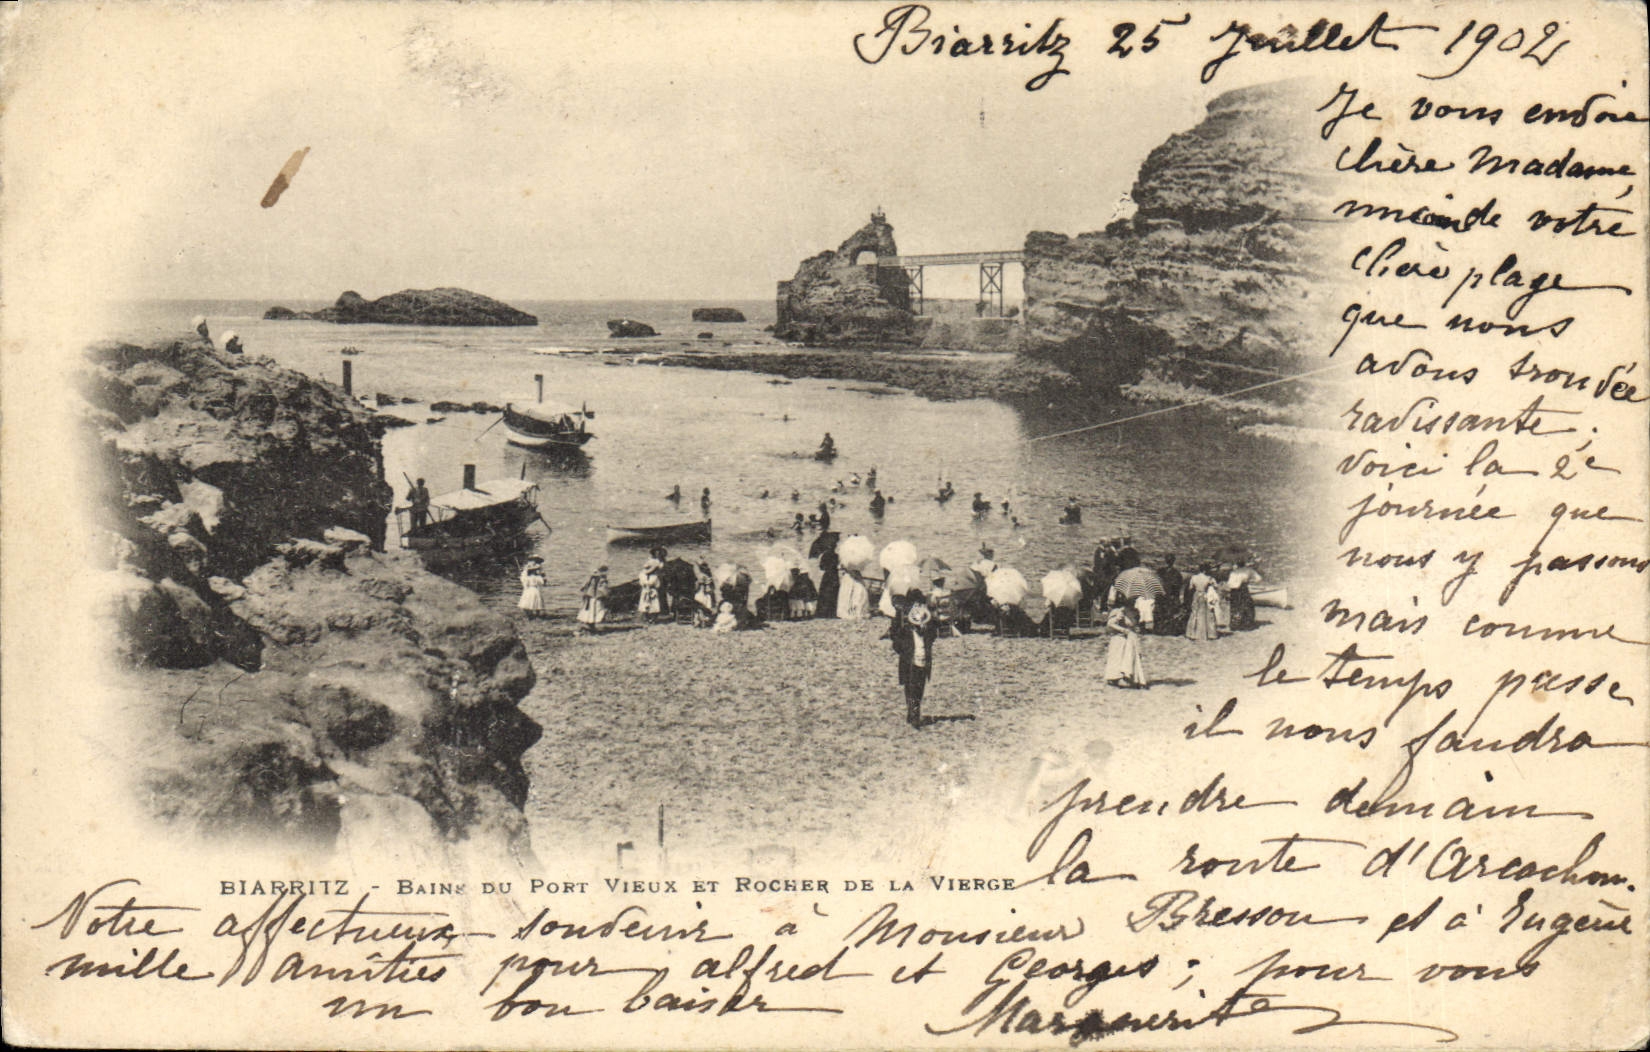 Biarritz 25 Juillet 1902
Je vous envoie
chère Madame,
un coin de votre
chère plage
que nous
avons trouvée
ravissante ;
voici la 2e
journée que
nous y passons
mais comme
le temps passe
il nous faudra
prendre demain
la route d'Arcachon.
BIARRITZ - BAINS DU PORT VIEUX ET ROCHER DE LA VIERGE
Notre affectueux souvenir à Monsieur Bresson et à Eugène
mille amitiés pour alfred et Georges ; pour vous
un bon baiser Marguerite